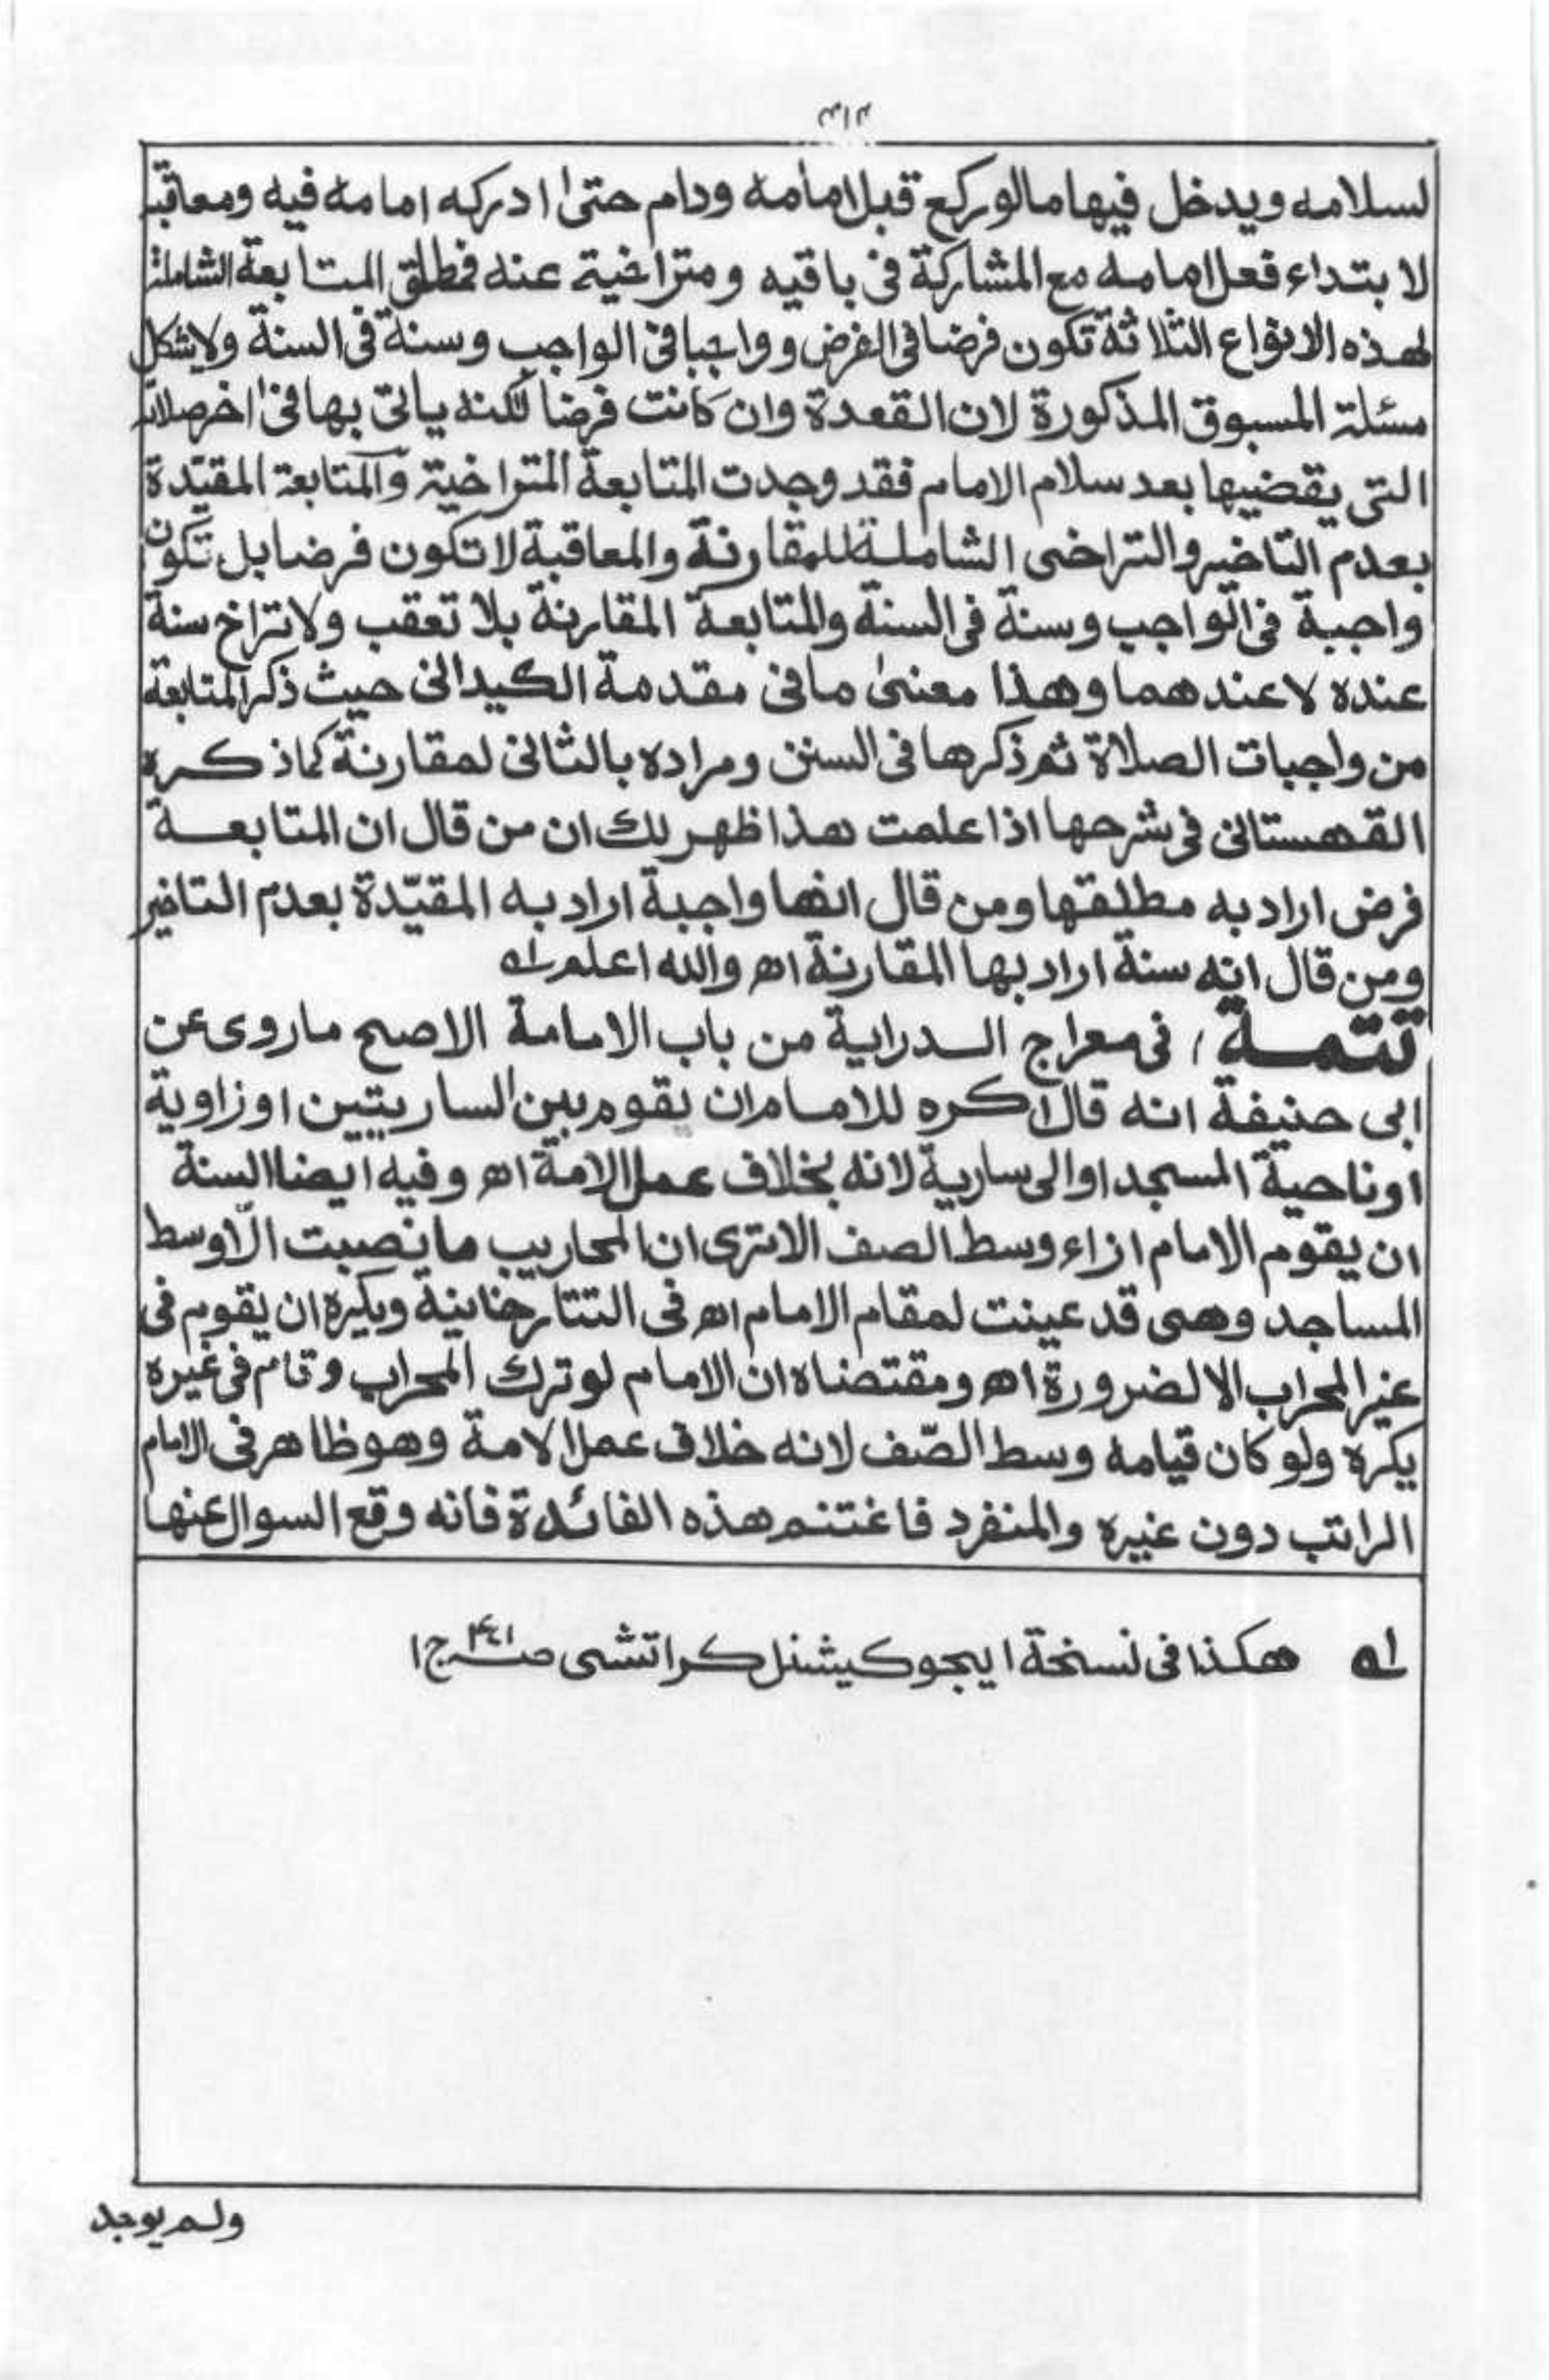 لسلامه ويدخل فيها مالو ركع قبل امامه ودام حتى ادركه امامه فيه ومعاقبة
لابتداء فعل امامه مع المشاركة فى باقيه ومتراخية عنه فمطلق المتابعة الشاملة
لهذه الانواع الثلاثة تكون فرضا فى الفرض وواجبا فى الواجب وسنة فى السنة ولا يشكل
مسئلة المسبوق المذكورة لان القعدة وان كانت فرضا لكنه ياتى بها فى اخر صلاته
التى يقضيها بعد سلام الامام فقد وجدت المتابعة المتراخية والمتابعة المقيّدة
بعدم التاخير والتراخى الشاملة للمقارنة والمعاقبة لا تكون فرضا بل تكون
واجبة فى الواجب وسنة فى السنة والمتابعة المقارنة بلا تعقب ولا تراخ سنة
عنده لا عندهما وهذا معنىٰ ما فى مقدمة الكيدانى حيث ذكر المتابعة
من واجبات الصلاة ثم ذكرها فى السنن ومراده بالثانى لمقارنة كما ذكره
القهستانى فى شرحها اذا علمت هذا ظهر لك ان من قال ان المتابعة
فرض اراد به مطلقها ومن قال انها واجبة اراد به المقيّدة بعدم التاخير
ومن قال انه سنة اراد بها المقارنة اھ والله اعلم لہ
تتمة ، فى معراج الدراية من باب الامامة الاصح ماروى عن
ابى حنيفة انه قال اكره للامام ان يقوم بين الساريتين او زاوية
او ناحية المسجد او الى سارية لانه بخلاف عمل الامة اھ وفيه ايضا السنة
ان يقوم الامام ازاء وسط الصف الا ترى ان المحاريب ما نصبت الّا وسط
المساجد وهى قد عينت لمقام الامام اھ فى التتارخانية ويكره ان يقوم فى
غير المحراب الا لضرورة اھ ومقتضاه ان الامام لو ترك المحراب وقام فى غيره
يكره ولو كان قيامه وسط الصّف لانه خلاف عمل الامة وهو ظاهر فى الامام
الراتب دون غيره والمنفرد فاغتنم هذه الفائدة فانه وقع السوال عنها
لہ هكذا فى نسخة ايجوكيشنل كراتشى صـ ج ١
ولم يوجد